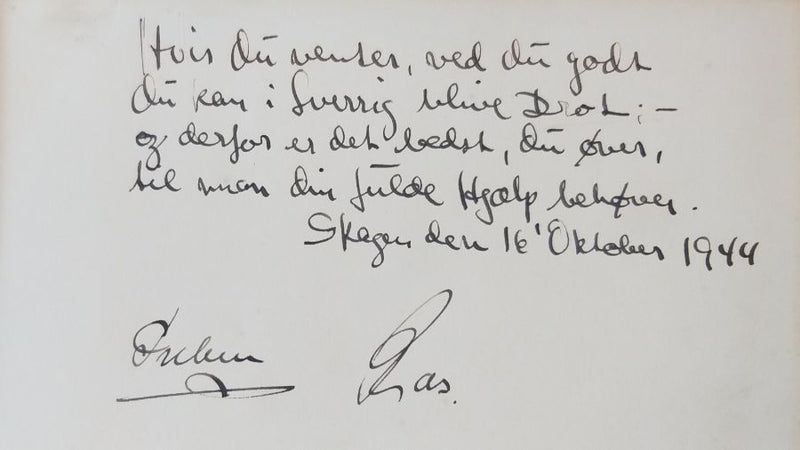 Hvis du venter, ved du godt
du kan i Sverrig blive Drot; –
og derfor er det bedst, du øver,
til man din fulde Hjælp behøver.
Skagen den 16' Oktober 1944
Preben